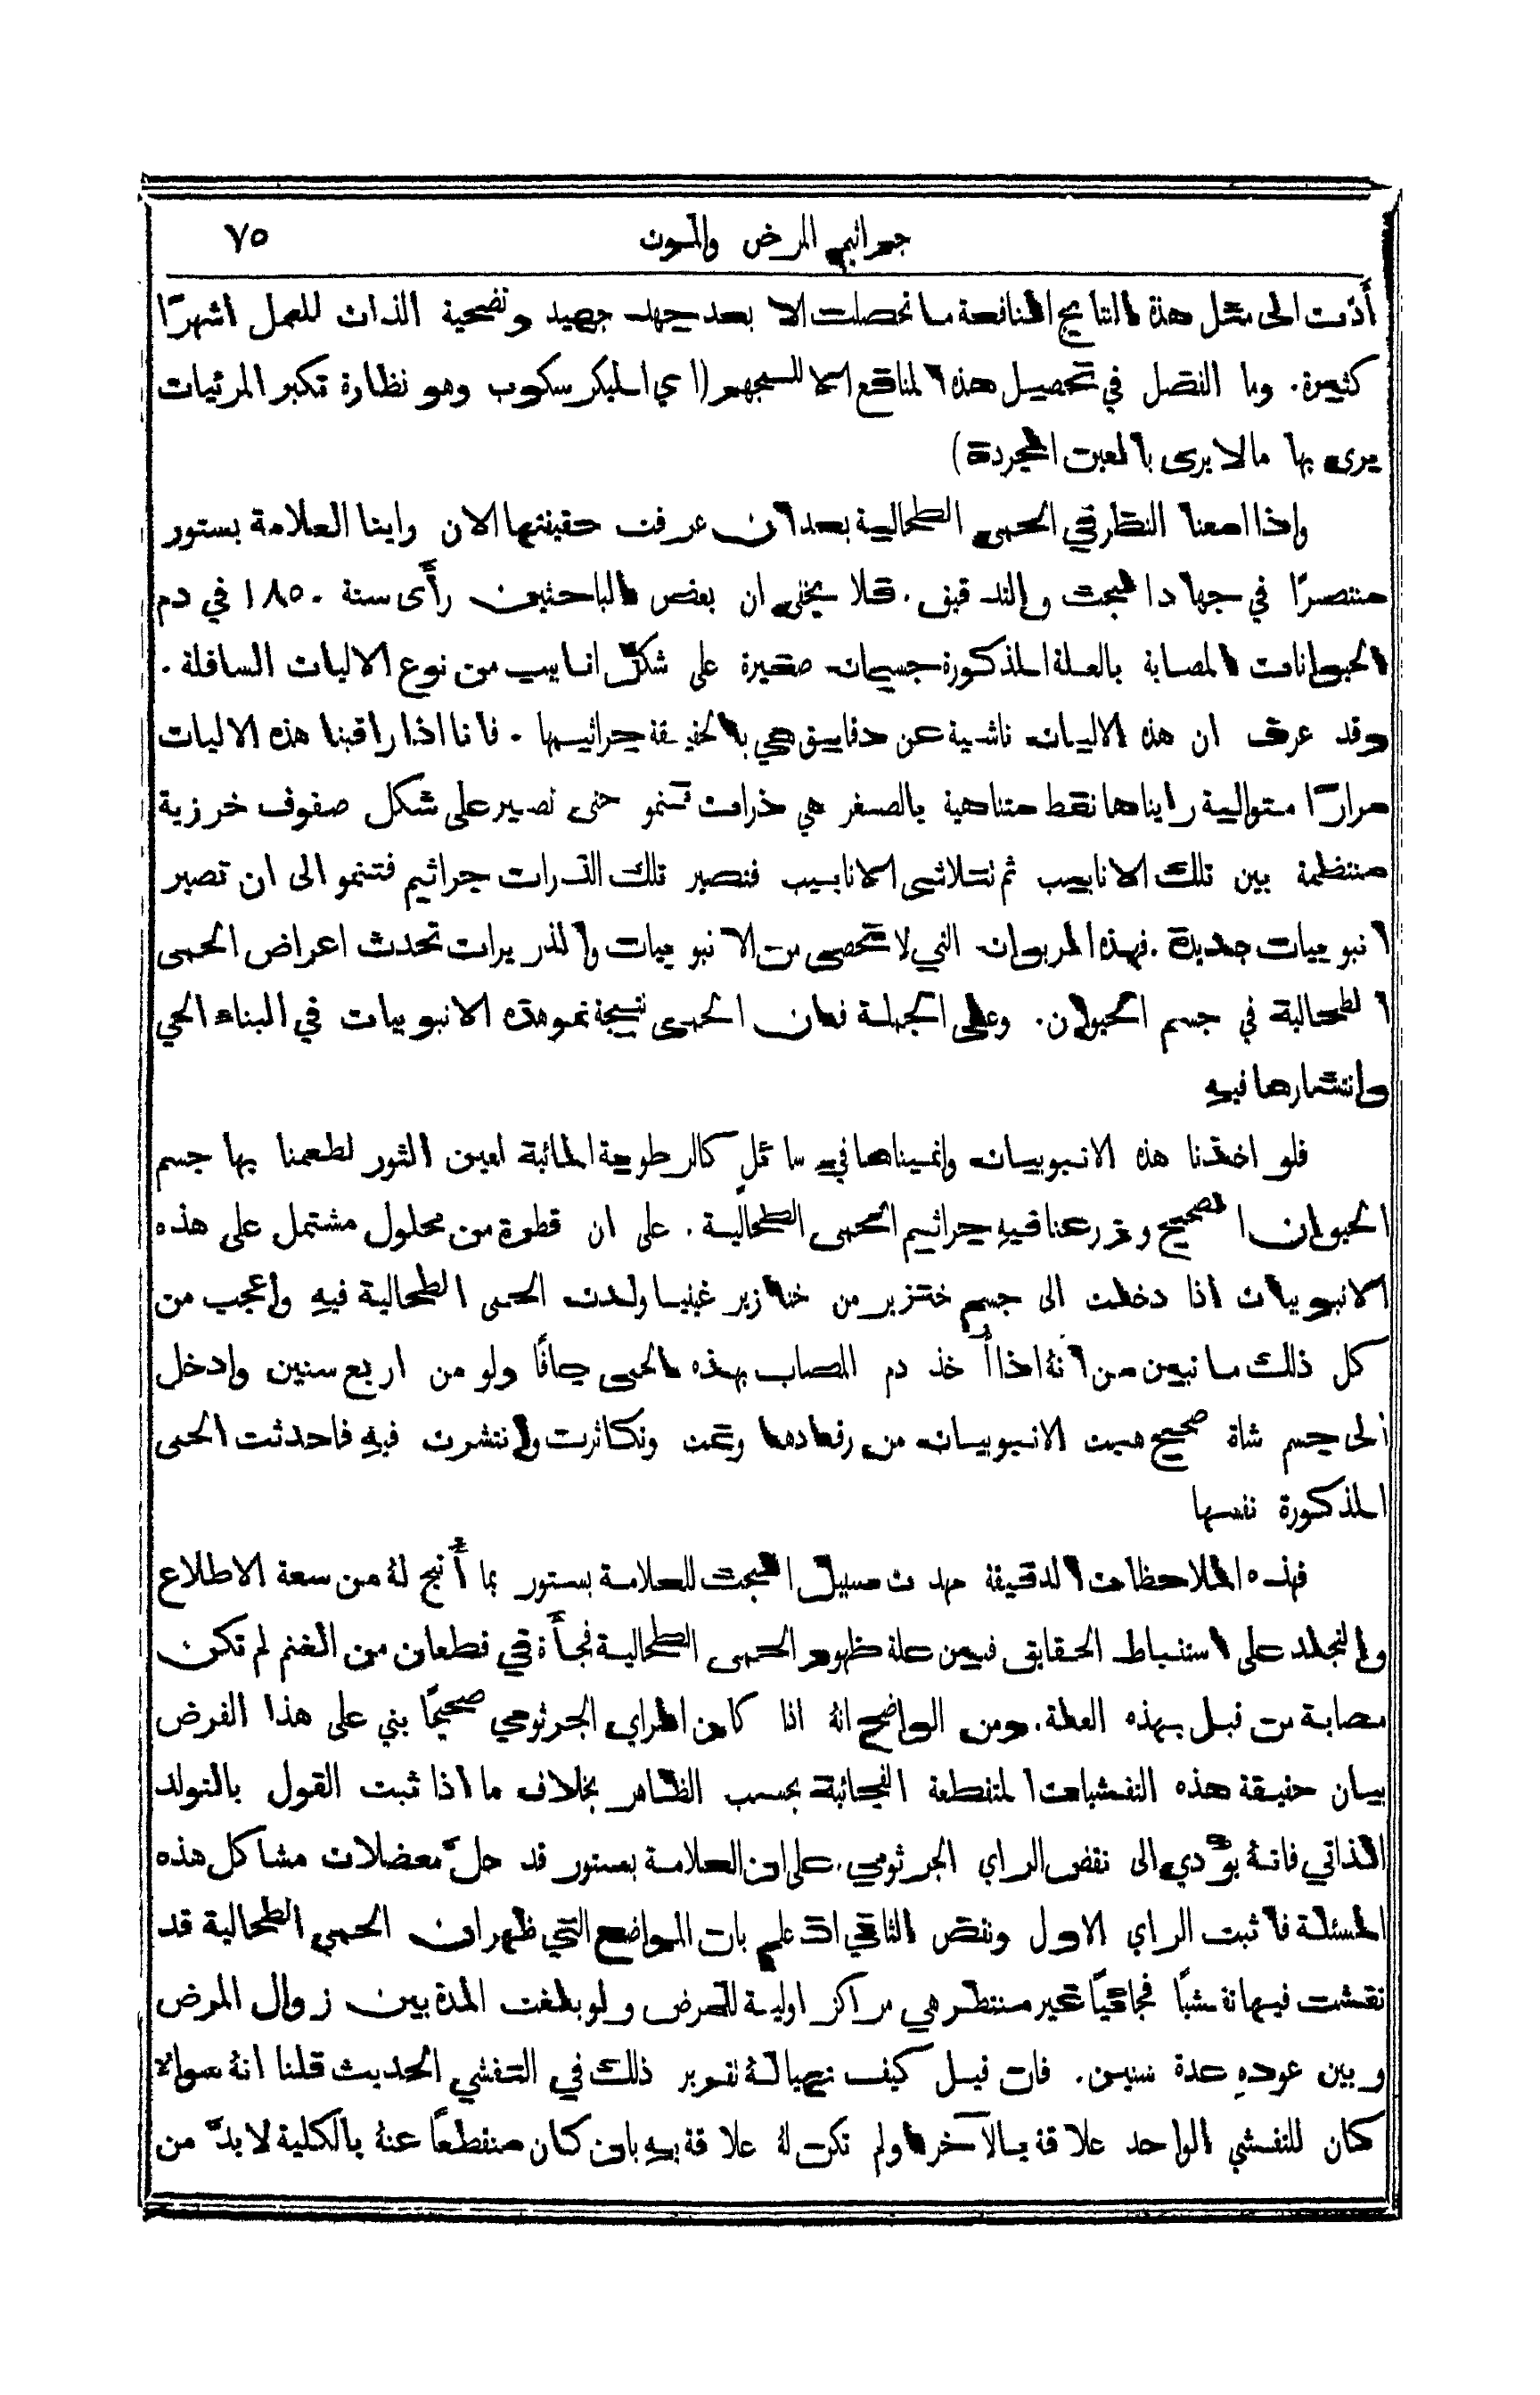 جراثيم المرض والموت ٧٥
أدّت الى مثل هذه النتايج النافعة ما تحصلت الا بعد جهد جهيد وتضحية الذات للعمل اشهرًا
كثيرة. وما الفضل في تحصيل هذه المنافع الا للمجهر (اي المكرسكوب وهو نظارة تكبر المرئيات
يرى بها ما لا يرى بالعين المجردة)
واذا امعنا النظر في الحمى الطحالية بعد ان عرفت حقيقتها الان راينا العلامة بستور
منتصرًا في جهاد البحث والتدقيق. فلا يخفى ان بعض الباحثين رأَى سنة ١٨٥٠ في دم
الحيوانات المصابة بالعلة المذكورة جسيمات صغيرة على شكل انابيب من نوع الاليات السافلة.
وقد عرف ان هذه الاليات ناشية عن دقايق هي بالحقيقة جراثيمها. فاننا اذا راقبنا هذه الاليات
مرارًا متوالية رايناها نقط متناهية بالصغر هي ذرات تنمو حتى تصير على شكل صفوف خرزية
منتظمة بين تلك الانابيب ثم تتلاشى الانابيب فتصير تلك الذرات جراثيم فتنمو الى ان تصير
انبوبيات جديدة. فهذه المربوات التي لا تحصى من الانبوبيات والذريرات تحدث اعراض الحمى
الطحالية في جسم الحيوان. وعلى الجملة فان الحمى نتيجة نمو هذه الانبوبيات في البناء الحي
وانتشارها فيهِ
فلو اخذنا هذه الانبوبيات وانميناها في سائلٍ كالرطوبة المائية لعين الثور لطعمنا بها جسم
الحيوان الصحيح وزرعنا فيهِ جراثيم الحمى الطحالية. على ان قطرة من محلول مشتمل على هذه
الانبوبيات اذا دخلت الى جسم خنزير من خنازير غينيا ولدت الحمى الطحالية فيهِ واعجب من
كل ذلك ما تبين من انهُ اذا أُخذ دم المصاب بهذه الحمى جافًا ولو من اربع سنين وادخل
الى جسم شاة صحيح هبت الانبوبيات من رقادها ونمت وتكاثرت وانتشرت فيهِ فاحدثت الحمى
المذكورة نفسها
فهذه الملاحظات الدقيقة مهدت سبيل البحث للعلامة بستور بما أُتيح لهُ من سعة الاطلاع
والتجلد على استنباط الحقايق فبين علة ظهور الحمى الطحالية فجأَة في قطعان من الغنم لم تكن
مصابة من قبل بهذه العلة. ومن الواضح انهُ اذا كان الراي الجرثومي صحيحًا بني على هذا الفرض
بيان حقيقة هذه التفشيات المتقطعة الفجائية بحسب الظاهر بخلاف ما اذا ثبت القول بالتولد
الذاتي فانهُ يؤَدي الى نقض الراي الجرثومي. على ان العلامة بستور قد حلّ معضلات مشاكل هذه
المسئلة فاثبت الراي الاول ونقض الثاني اذ علم بان المواضع التي ظهر ان الحمى الطحالية قد
تفشت فيها تفشيًا فجائيًا غير منتظر هي مراكز اولية للمرض ولو بلغت المدة بين زوال المرض
وبين عودهِ عدة سنين. فان قيل كيف تهيا لهُ تقرير ذلك في التفشي الحديث قلنا انهُ سوالا
كان للتفشي الواحد علاقة بالآخر او لم تكن لهُ علاقة بهِ بان كان منقطعًا عنهُ بالكلية لا بدّ من